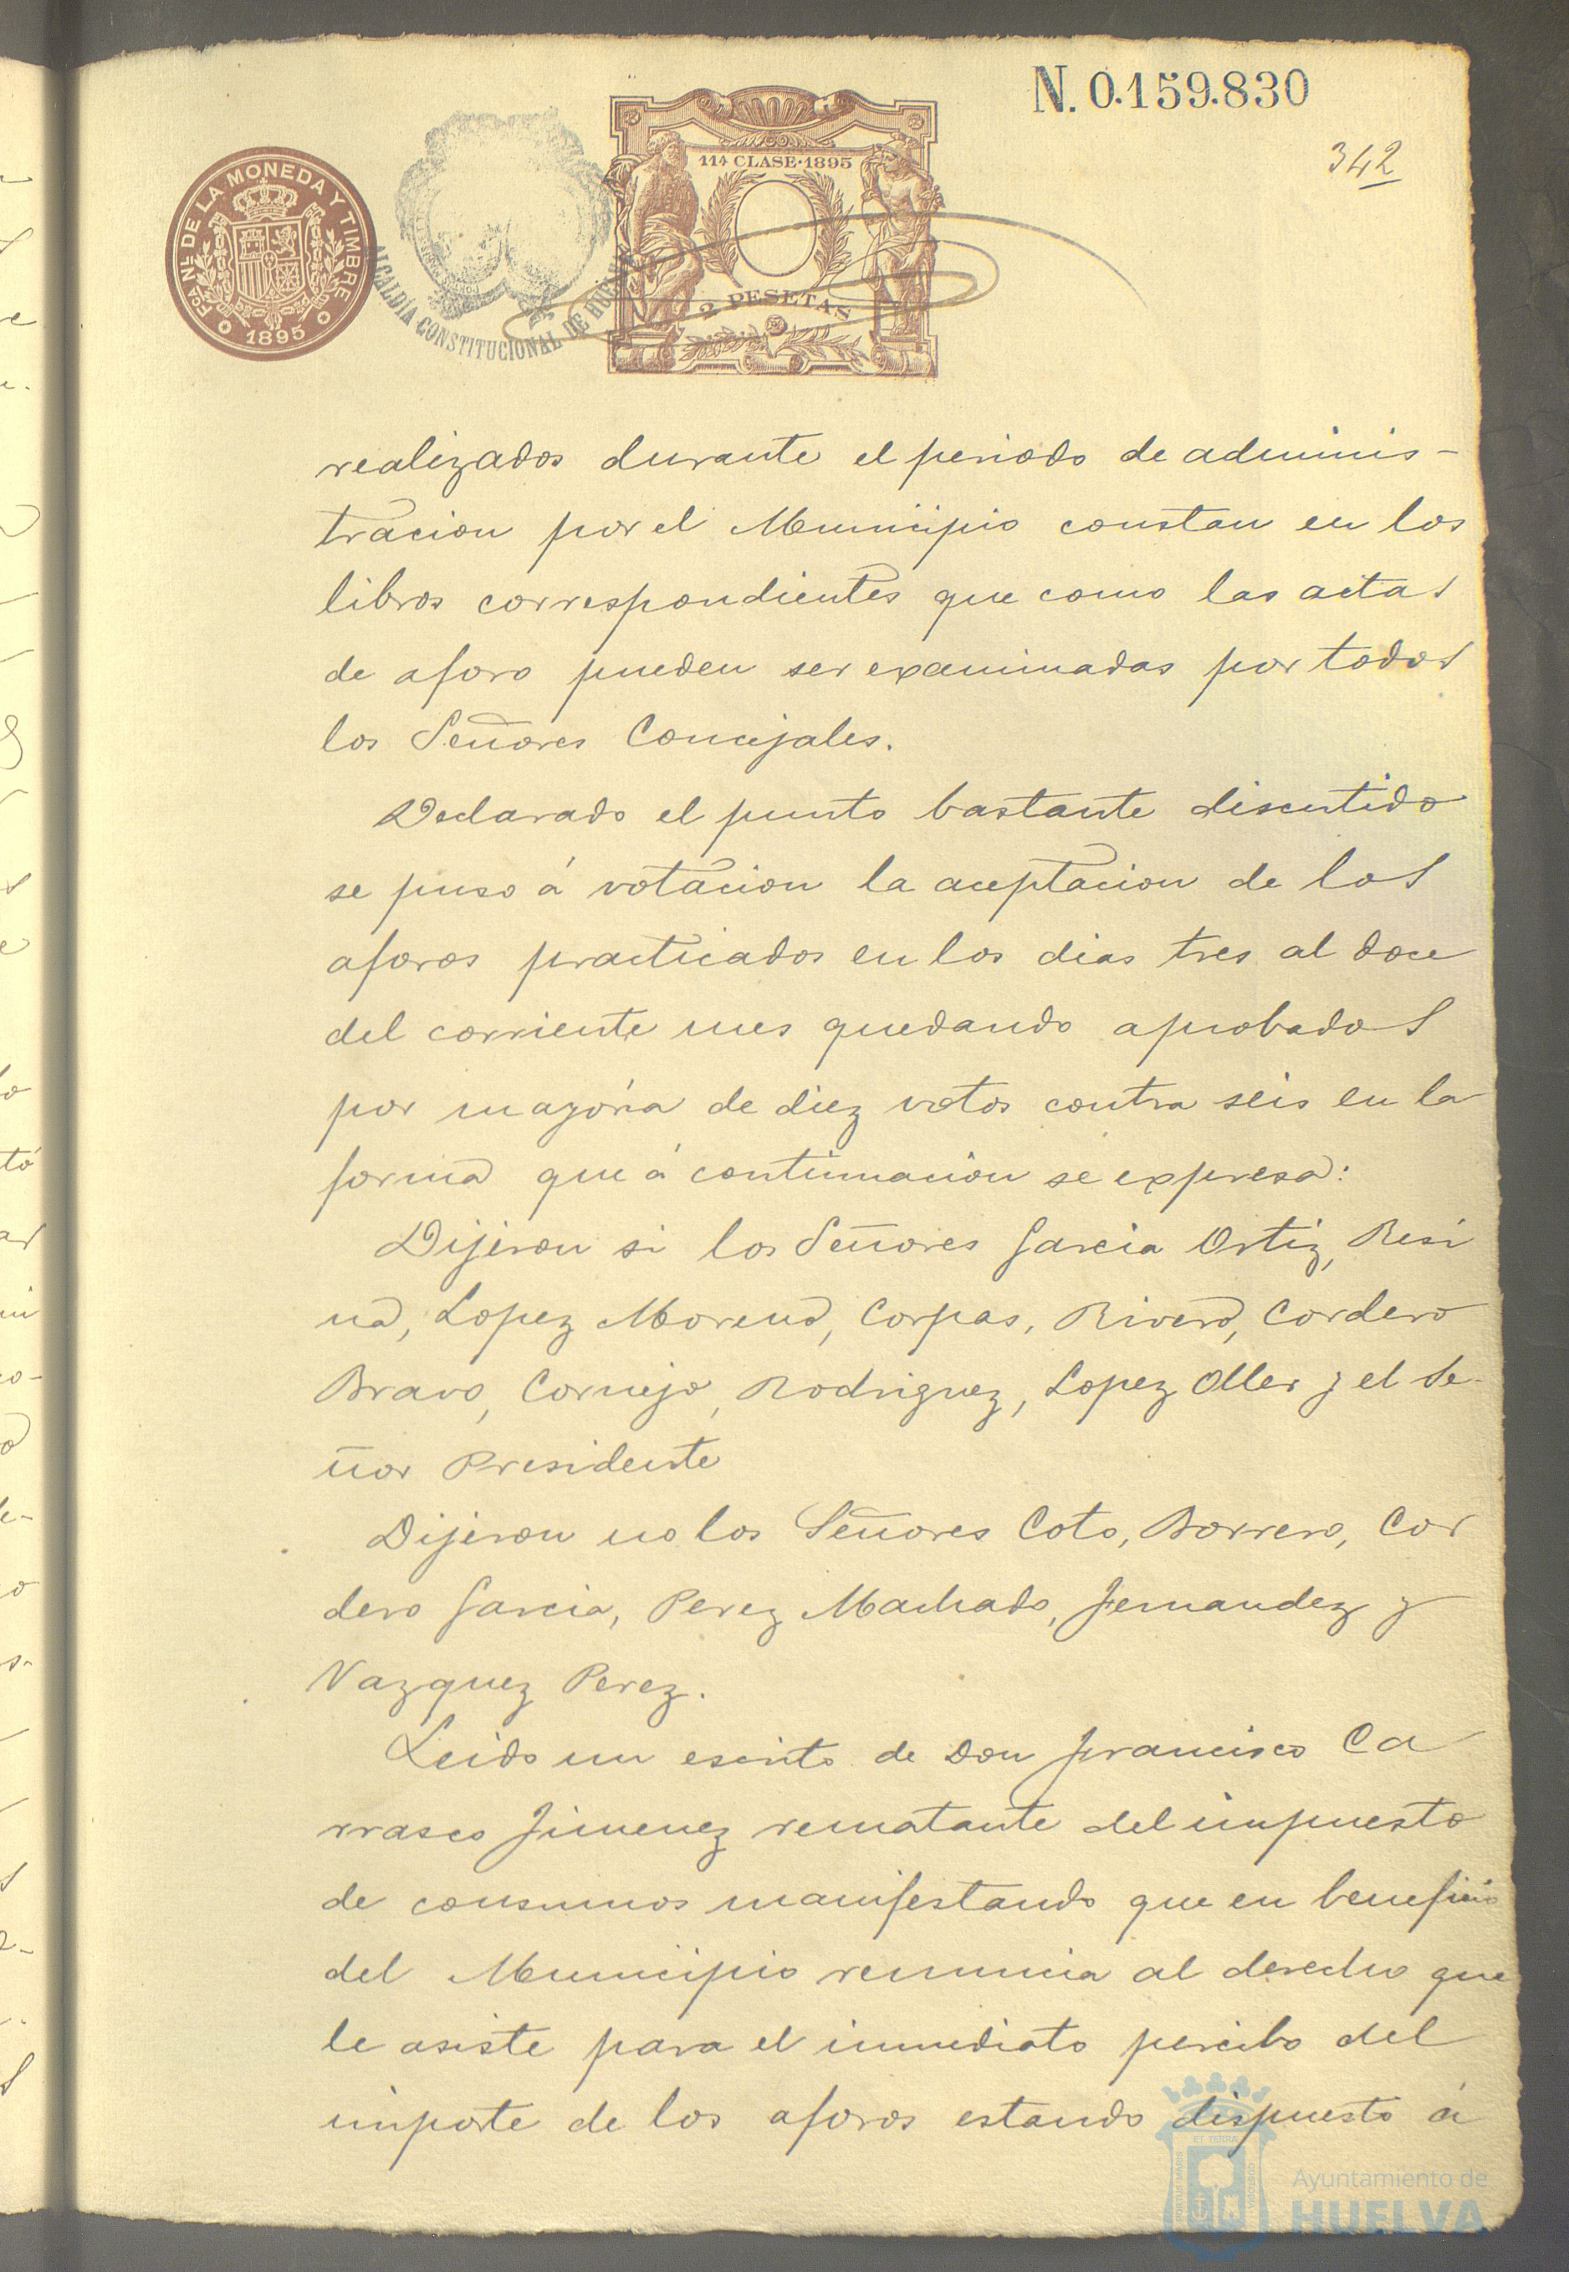 N. 0.159.830
342
FCA NL DE LA MONEDA Y TIMBRE
1895
ALCALDÍA CONSTITUCIONAL DE HUELVA
11ª CLASE·1895
2 PESETAS
realizados durante el periodo de adminis-
tracion por el Municipio constan en los
libros correspondientes que como las actas
de aforo pueden ser examinadas por todos
los Señores Concejales.
Declarado el punto bastante discutido
se puso á votacion la aceptacion de los
aforos practicados en los dias tres al doce
del corriente mes quedando aprobados
por mayoría de diez votos contra seis en la
forma que á continuacion se expresa:
Dijeron si los Señores Garcia Ortiz, Resi
na, Lopez Moreno, Corpas, Rivero, Cordero
Bravo, Cornejo, Rodriguez, Lopez Oller y el Se-
ñor Presidente
Dijeron no los Señores Coto, Borrero, Cor
dero Garcia, Perez Machado, Fernandez y
Vazquez Perez.
Leido un escrito de Don Francisco Ca
rrasco Jimenez rematante del impuesto
de consumos manifestando que en beneficio
del Municipio renuncia al derecho que
le asiste para el inmediato percibo del
importe de los aforos estando dispuesto á
Ayuntamiento de
HUELVA